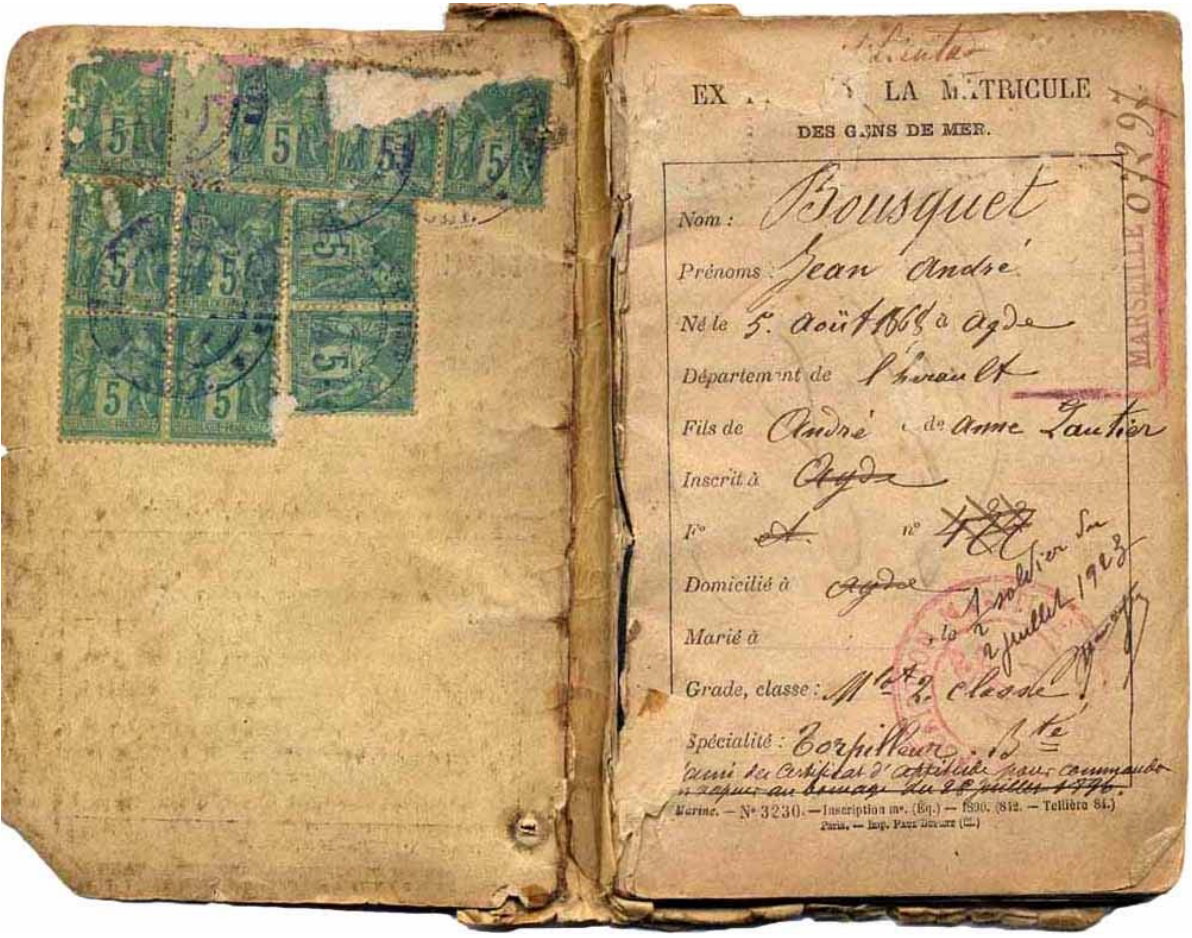 5
5
5
5
5
5
5
5
5
5
EX LA MATRICULE
DES GENS DE MER.
MARSEILLE 07297
Nom : Bousquet
Prénoms : Jean André
Né le 5. Août 1868 à Agde
Département de l'hérault
Fils de André de Anne Gautier
Inscrit à Agde
Fº nº
Domicilié à Agde
Marié à
2 juillet 1923
Grade, classe : Mlot 2 classe
Spécialité : Torpilleur. Bté
certificat d'aptitude pour
au bornage du 28 juillet 1896.
Marine. — Nº 3230. — Inscription mº. (Éq.) — 1890. (812. — Tellière 84.)
Paris. — Imp. PAUL DUPONT (Cl.)